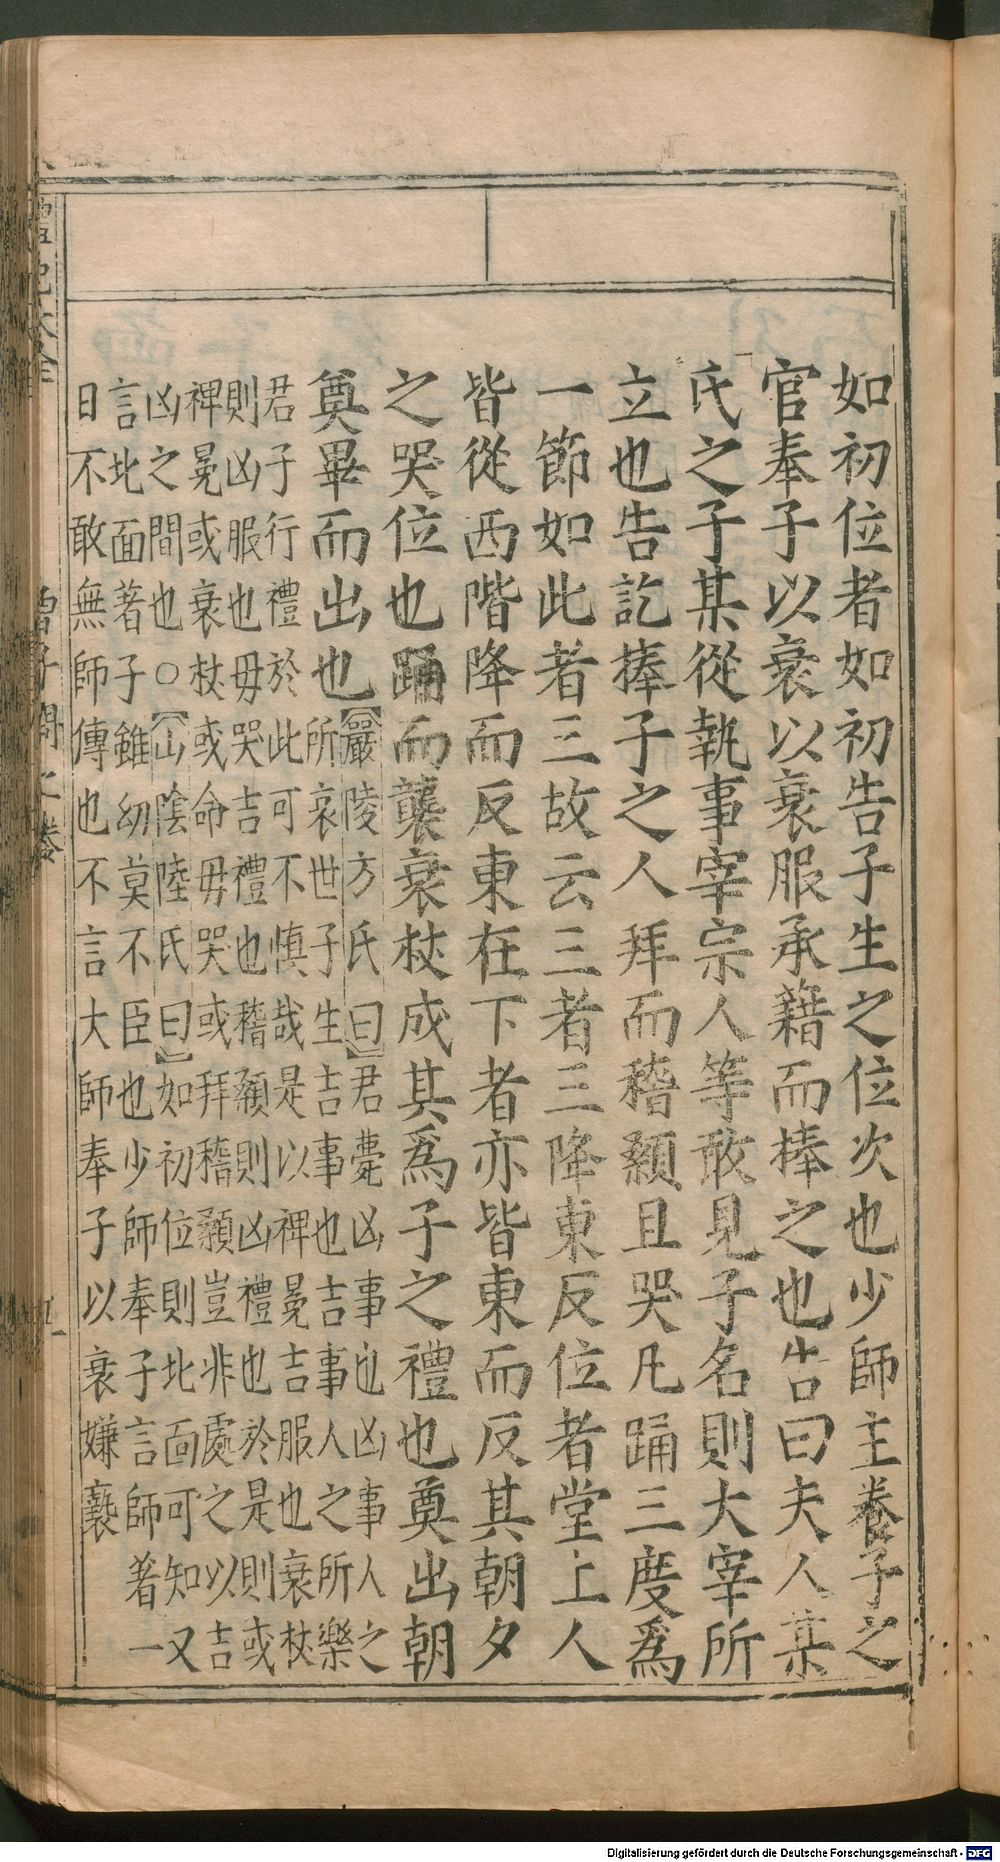 如初位者如初告子生之位次也少師主養子之
官奉子以衰以衰服承藉而捧之也告曰夫人某
氏之子某從執事宰宗人等敢見子名則大宰所
立也告訖捧子之人拜而稽顙且哭凡踊三度爲
一節如此者三故云三者三降東反位者堂上人
皆從西階降而反東在下者亦皆東而反其朝夕
之哭位也踊而襲衰杖成其爲子之禮也奠出朝
奠畢而出也【嚴陵方氏曰】君薨凶事也凶事人之
所哀世子生吉事也吉事人之所樂
君子行禮於此可不慎哉是以裨冕吉服也衰杖
則凶服也毋哭吉禮也稽顙則凶禮也於是則或
裨冕或衰杖或命毋哭或拜稽顙豈非處之以吉
凶之間也○【山陰陸氏曰】如初位則北面可知又
言北面著子雖幼莫不臣也少師奉子言師著一
日不敢無師傅也不言大師奉子以衰嫌褻
禮記大全
曾子問
Digitalisierung gefördert durch die Deutsche Forschungsgemeinschaft - DFG